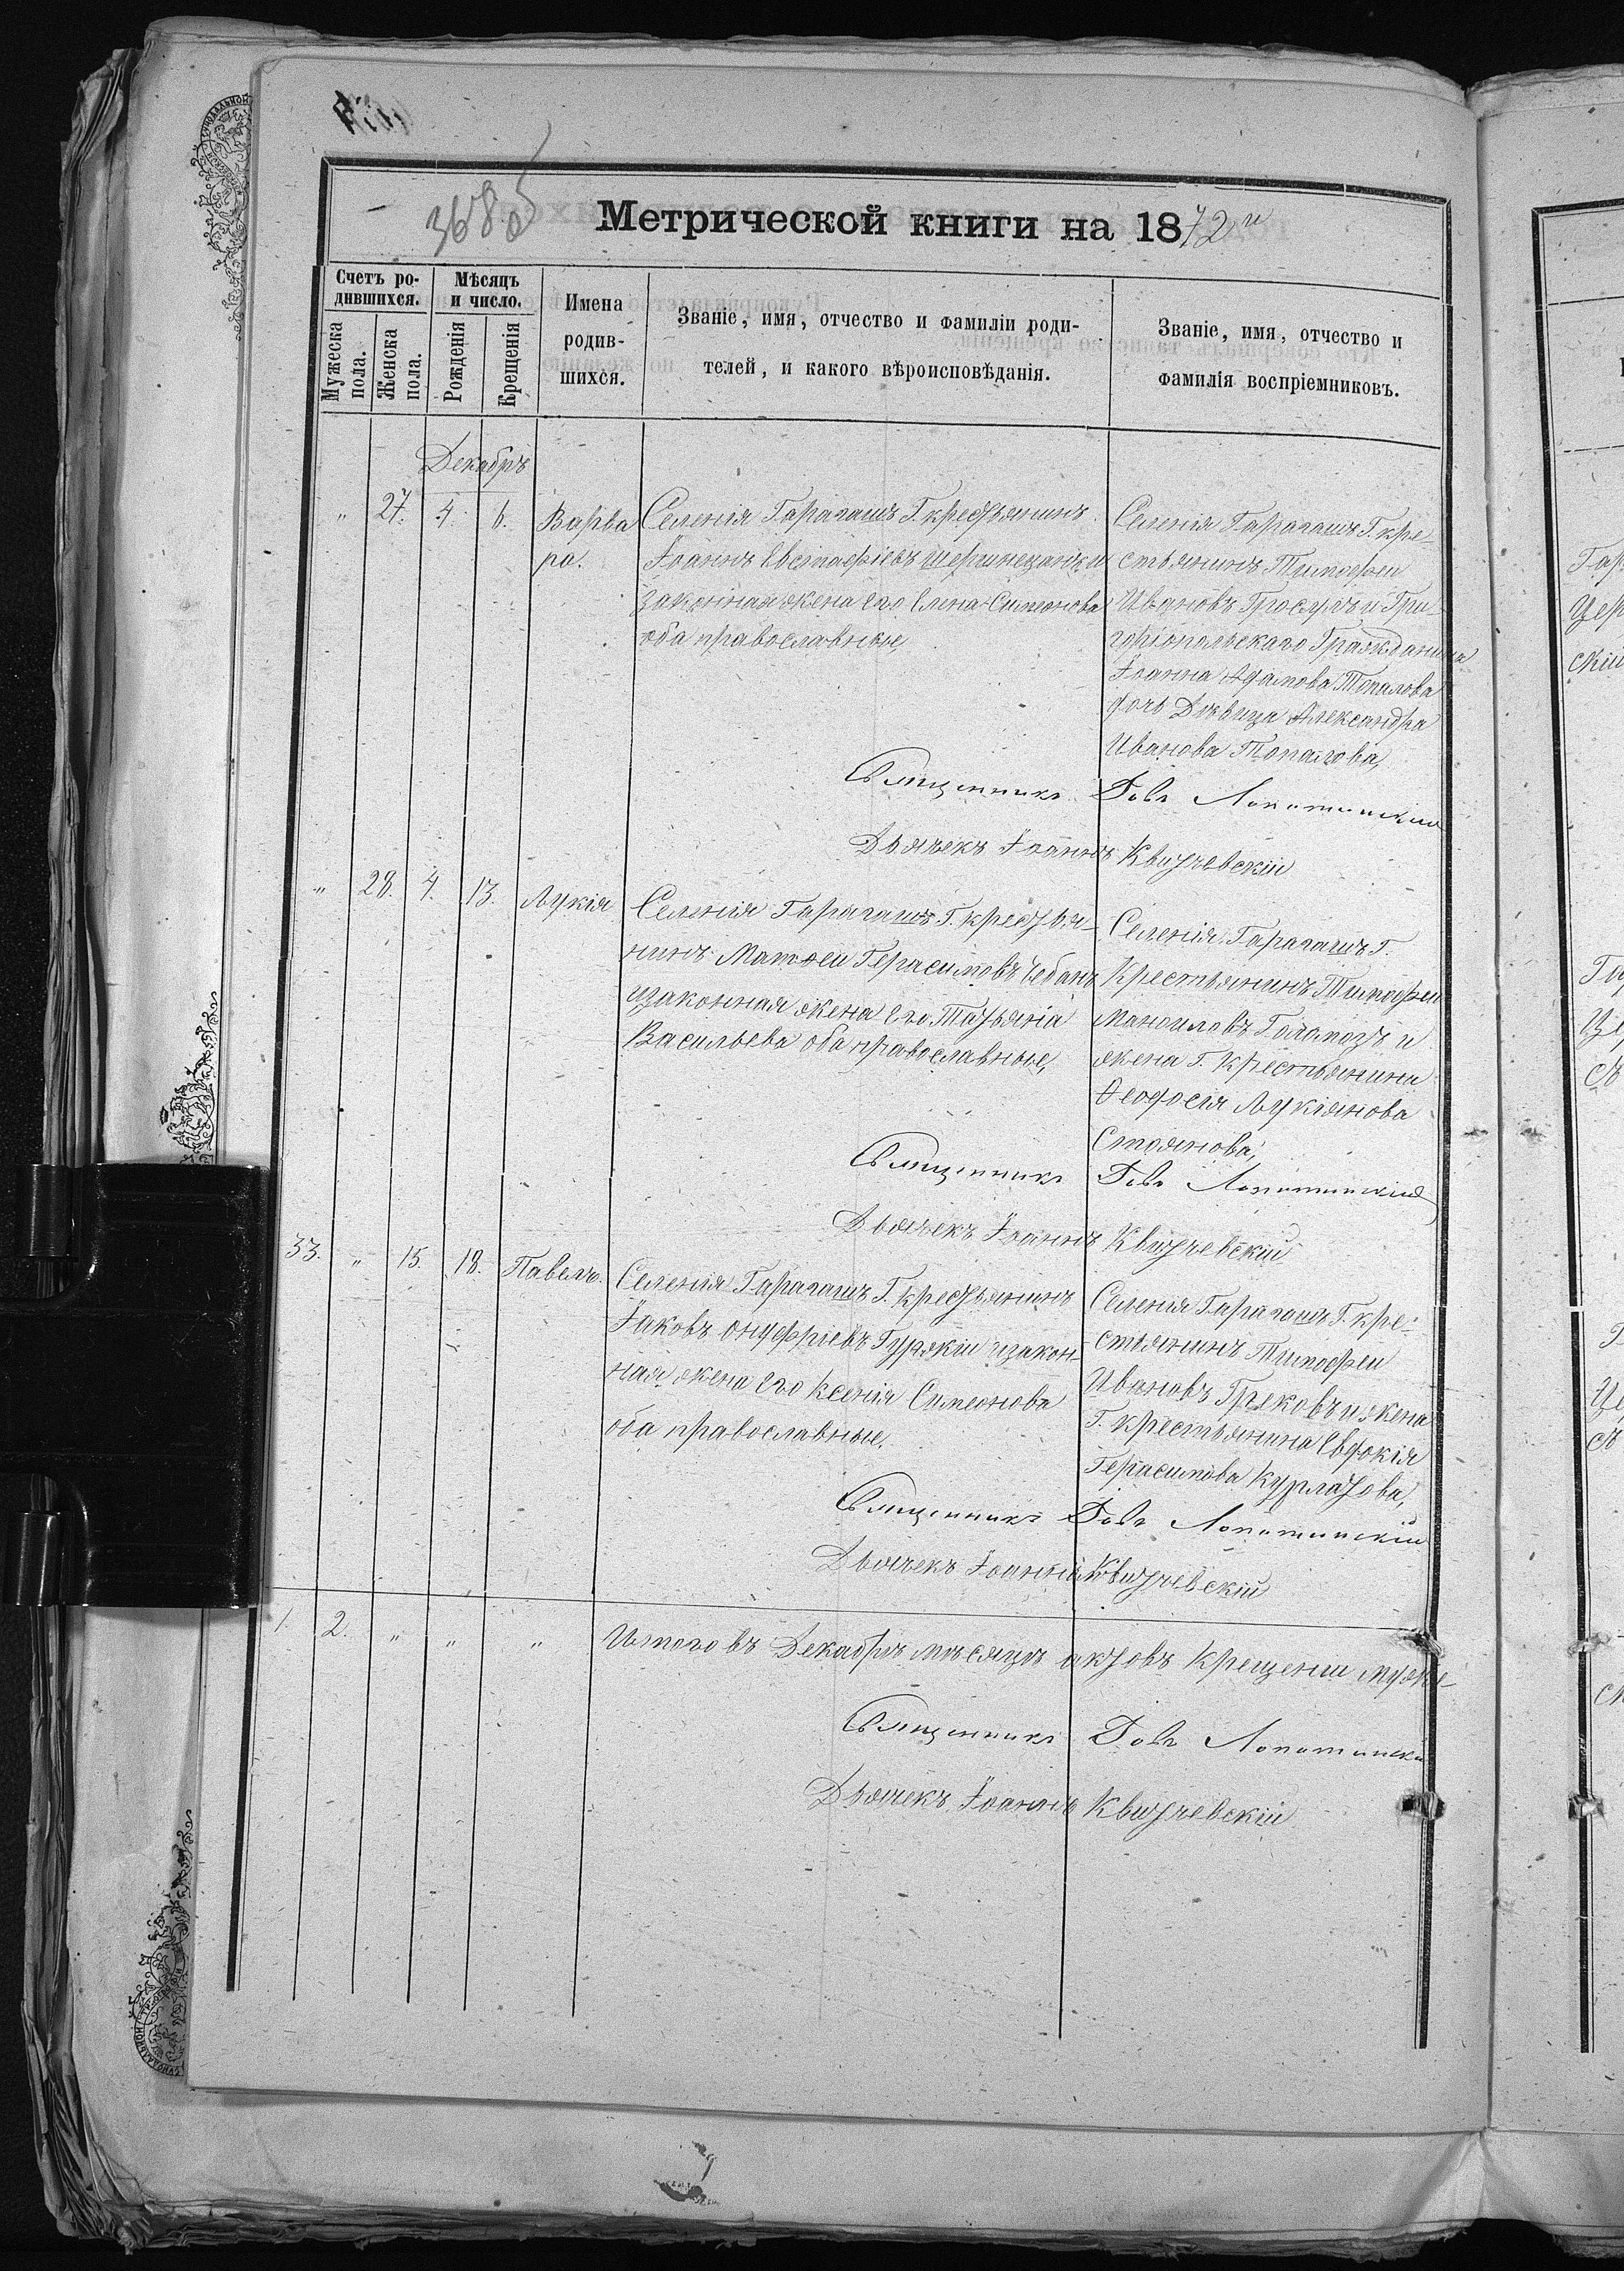 3680
Метрической книги на 1872 и
Счетъ ро-
дившихся.
Мѣсяцъ
и число.
Мужеска
пола.
Женска
пола.
Рожденія
Крещенія
Имена
родив-
шихся.
Званіе, имя, отчество и фамиліи роди-
телей, и какого вѣроисповѣданія.
Званіе, имя, отчество и
фамилія воспріемниковъ.
Декабрь
" 27. 4. 6. Варва
ра.
Селенія Гарагашъ Г. крестьянинъ
Іоаннъ Евстафіевъ и
законная жена его Елена Симеонова
оба православные,
Селенія Гарагашъ Г. кре-
стьянинъ Тимофеи
Ивановъ Гросулъ и Гри-
горіопольскаго Гражданина
Іоанна Адамова Топалова
дочь Дѣвица Александра
Иванова Топалова,
Священникъ Іовъ Лопатинскій
Дьячекъ Іоаннъ Квитчевскій
" 28. 4. 13. Лукія
Селенія Гарагашъ Г. крестья-
нинъ Матѳеи Герасимовъ Чебанъ
изаконная жена его Татьяніа
Васильева оба православные,
Селенія Гарагашъ Г.
Крестьянинъ Тимофеи
МануиловъГоломозъ и
жена Г. Крестьянина
Ѳеодосія Лукіянова
Стоянова,
Священникъ Іовъ Лопатинскій
Дьячекъ Іоаннъ Квитчевскій
33. " 15. 18. Павелъ.
Селенія Гарагашъ Г. крестьянинъ
Іаковъ Онуфріевъ Гуржіи изакон-
ная жена его Ксенія Симеонова
оба православные.
Селенія Гарагашъ Г. кре-
стьянинъ Тимофеи
Ивановъ Грековъ и жена
Г. крестьянина Евдокія
Герасимова Курлатова,
Священникъ Іовъ Лопатинскій
Дьячекъ Іоаннъ Квитчевскій
1. 2. " " " Итого въ Декабрѣ мѣсяцѣ актовъ Крещеніи муже-
Священникъ Іовъ Лопатинскі
Дьячекъ Іоаннъ Квитчевскій